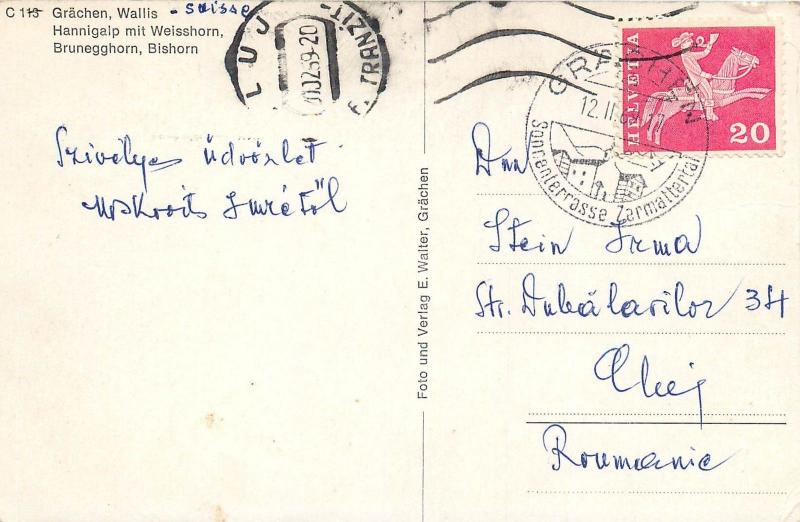 C 113 Grächen, Wallis - Suisse
Hannigalp mit Weisshorn,
Brunegghorn, Bishorn
LUJ
F. TRANZIT
GRÄCHEN
12. II.
Sonnenterrasse Zermattertal
HELVETIA
20
Szívélyes üdvözlet
Imrétől
Foto und Verlag E. Walter, Grächen
Dnn
Stein Irma
Str. Dubălarilor 34
Cluj
Roumanie